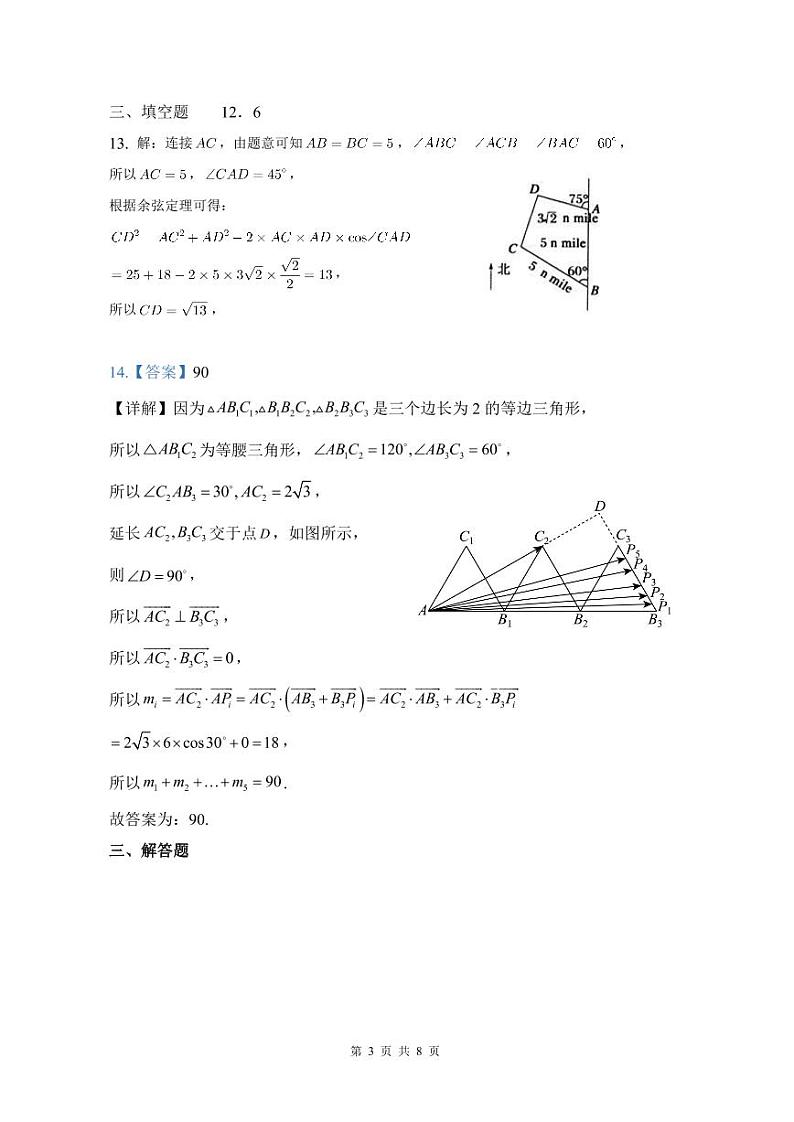 三、填空题 12．6
13. 解：连接 AC，由题意可知 AB = BC = 5，∠ABC ∠ACB ∠BAC 60°，
所以 AC = 5，∠CAD = 45°，
根据余弦定理可得：
CD² AC² + AD² − 2 × AC × AD × cos∠CAD
= 25 + 18 − 2 × 5 × 3√2 × √2/2 = 13，
所以 CD = √13，
D
75°
A
3√2 n mile
C
5 n mile
北
5 n mile
60°
B
14.【答案】90
【详解】因为△AB₁C₁,△B₁B₂C₂,△B₂B₃C₃是三个边长为 2 的等边三角形，
所以△AB₁C₂为等腰三角形，∠AB₁C₂ = 120°,∠AB₃C₃ = 60°，
所以∠C₂AB₃ = 30°, AC₂ = 2√3，
延长 AC₂, B₃C₃交于点 D，如图所示，
则∠D = 90°，
所以 AC₂ ⊥ B₃C₃，
所以 AC₂ · B₃C₃ = 0，
所以 mᵢ = AC₂ · APᵢ = AC₂ · (AB₃ + B₃Pᵢ) = AC₂ · AB₃ + AC₂ · B₃Pᵢ
= 2√3 × 6 × cos30° + 0 = 18，
所以 m₁ + m₂ + … + m₅ = 90.
故答案为：90.
D
C₁
C₂
C₃
P₅
P₄
P₃
P₂
P₁
A
B₁
B₂
B₃
三、解答题
第 3 页 共 8 页